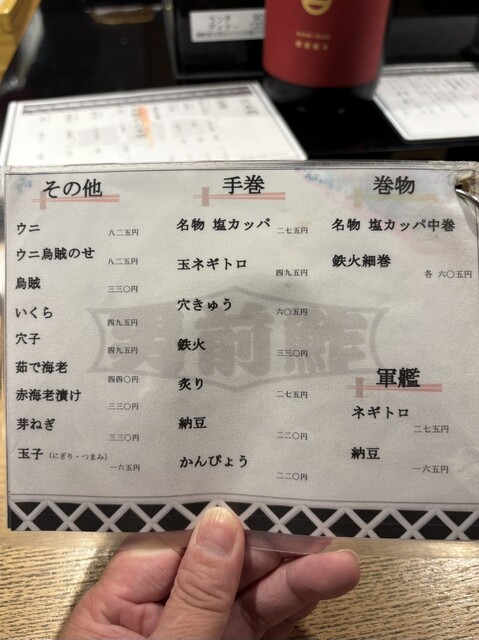 その他
ウニ
八二五円
ウニ烏賊のせ
八二五円
烏賊
三三〇円
いくら
四九五円
穴子
四九五円
茹で海老
四四〇円
赤海老漬け
三三〇円
芽ねぎ
三三〇円
玉子 (にぎり・つまみ)
一六五円
手巻
名物 塩カッパ
二七五円
玉ネギトロ
四九五円
穴きゅう
六〇五円
鉄火
三三〇円
炙り
二七五円
納豆
二二〇円
かんぴょう
二二〇円
巻物
名物 塩カッパ中巻
鉄火細巻
各 六〇五円
軍艦
ネギトロ
二七五円
納豆
一六五円
男前鮓